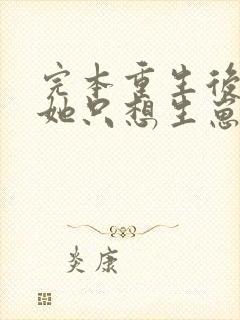 完本重生後
她只想生崽
炎康